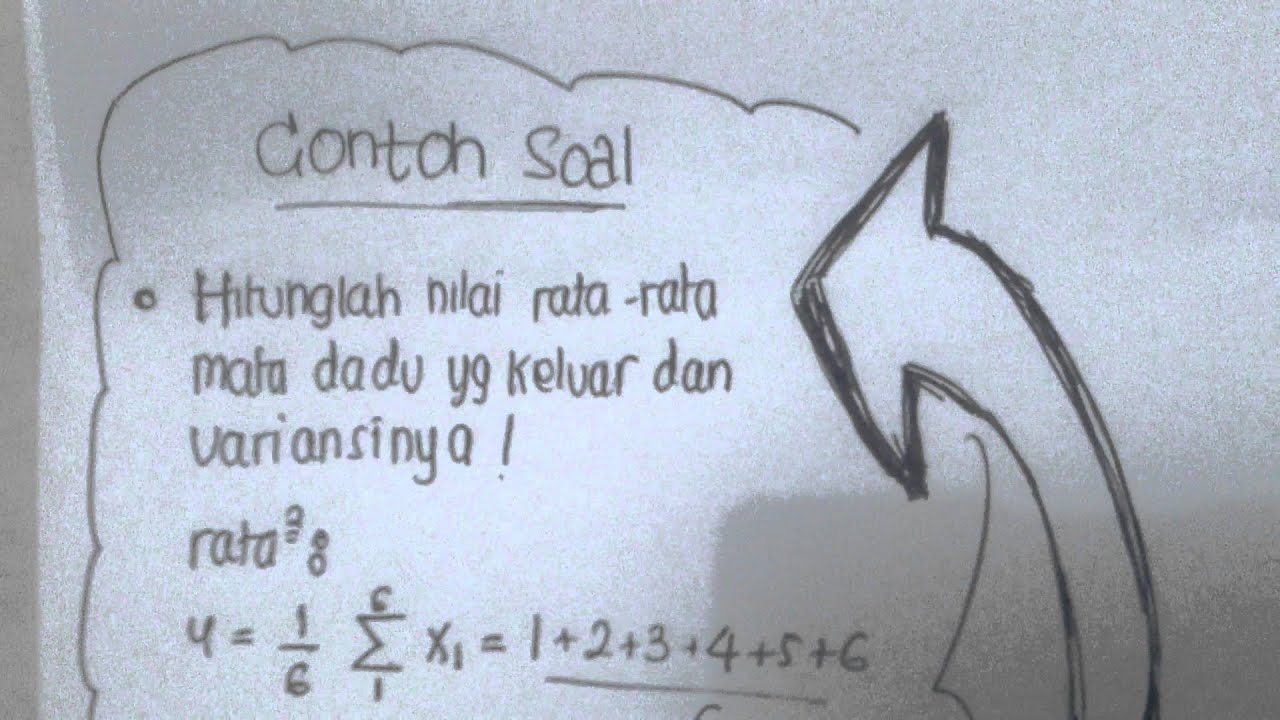 Contoh Soal
Hitunglah nilai rata-rata
mata dadu yg keluar dan
variansinya !
rata² :
μ = 1/6 6∑1 x1 = 1+2+3+4+5+6 / 6